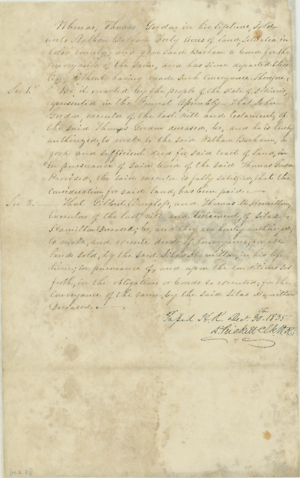 Whereas, Thomas Gordon in his lifetime, Sold
unto Nathan Barham Forty acres of land, situate in
County, and gave said Barham a bond for the
Conveyance of the same, and has since departed this
life without having made such Conveyance Therefore
Sec 1st Be it enacted by the people of the State of Illinois,
represented in the General Assembly, That John
Gordon executor of the last will and testament of
the said Thomas Gordon deceased, be, and he is hereby
authorized, to make, to the said Nathan Barham, a
good and sufficient deed for said tract of land, in
the pursuance of said bond of the said Thomas Gordon
deceased, the said executor is fully satisfied, that the
Consideration for said land, has been paid.
Sec 2 That and Thomas
Executors of the last will and testament of Silas
Hamilton deceased, be, and they are hereby authorized,
to make, and execute deeds of Conveyance, for the
lands sold, by the said Silas Hamilton, in his life
time, in pursuance of, and upon the conditions set
forth, in the obligations or bonds so executed, for the
conveyance of the same, by the said Silas Hamilton
deceased.
Passed H.R. Dec. 30. 1835
D. Prickett Clk H.R.